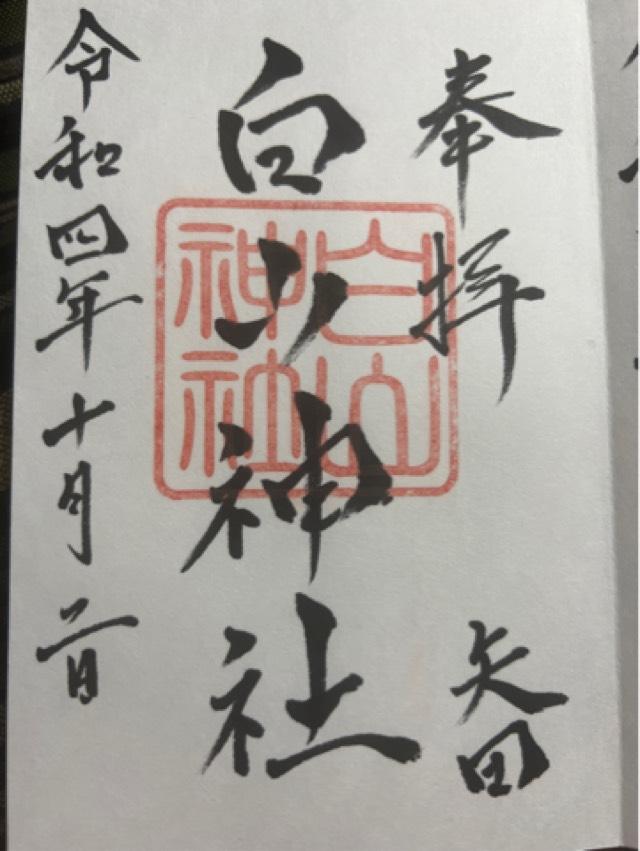 奉拝
矢田
白山神社
白山神社
令和四年十月二日